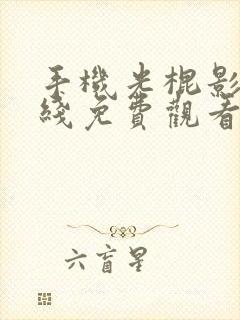 手機光棍影
綫免費觀看
六盲星